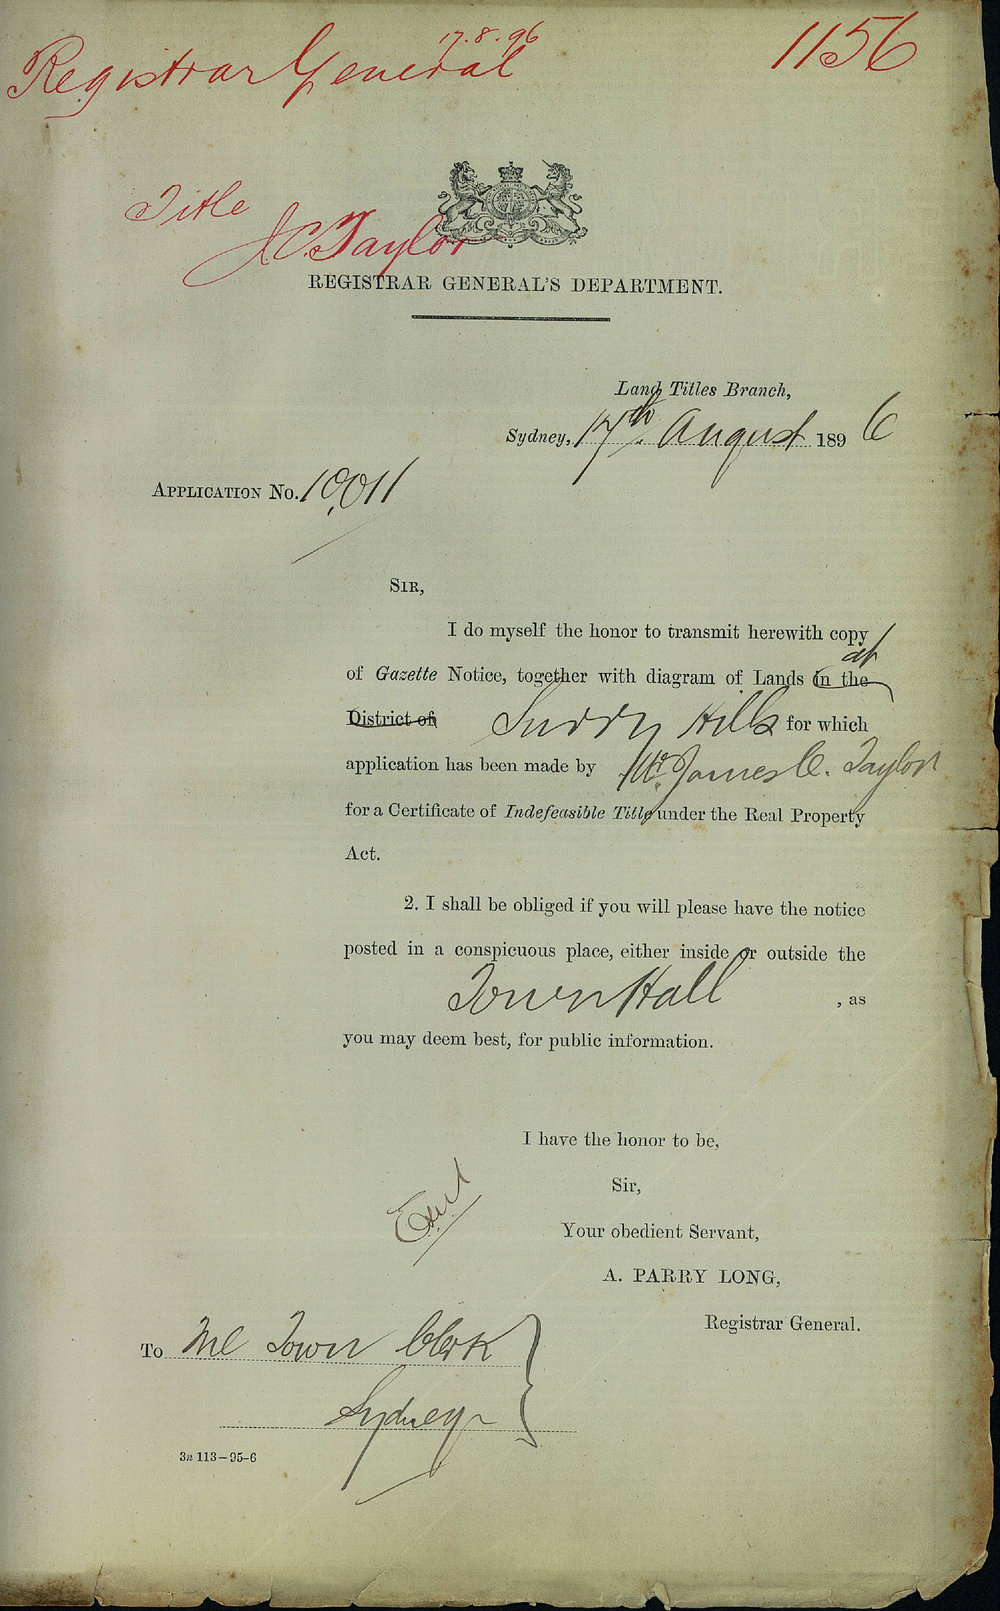 17.8.96
Registrar General
1156
Title
J C Taylor
REGISTRAR GENERAL'S DEPARTMENT.
Land Titles Branch,
Sydney, 17th. August 1896
APPLICATION NO. 10,011
SIR,
I do myself the honor to transmit herewith copy
at
of Gazette Notice, together with diagram of Lands in the
District of Surry Hills for which
application has been made by Mr. James C. Taylor
for a Certificate of Indefeasible Title under the Real Property
Act.
2. I shall be obliged if you will please have the notice
posted in a conspicuous place, either inside or outside the
Town Hall , as
you may deem best, for public information.
I have the honor to be,
Sir,
Your obedient Servant,
A. PARRY LONG,
Registrar General.
To The Town Clerk
Sydney
3n 113-95-6